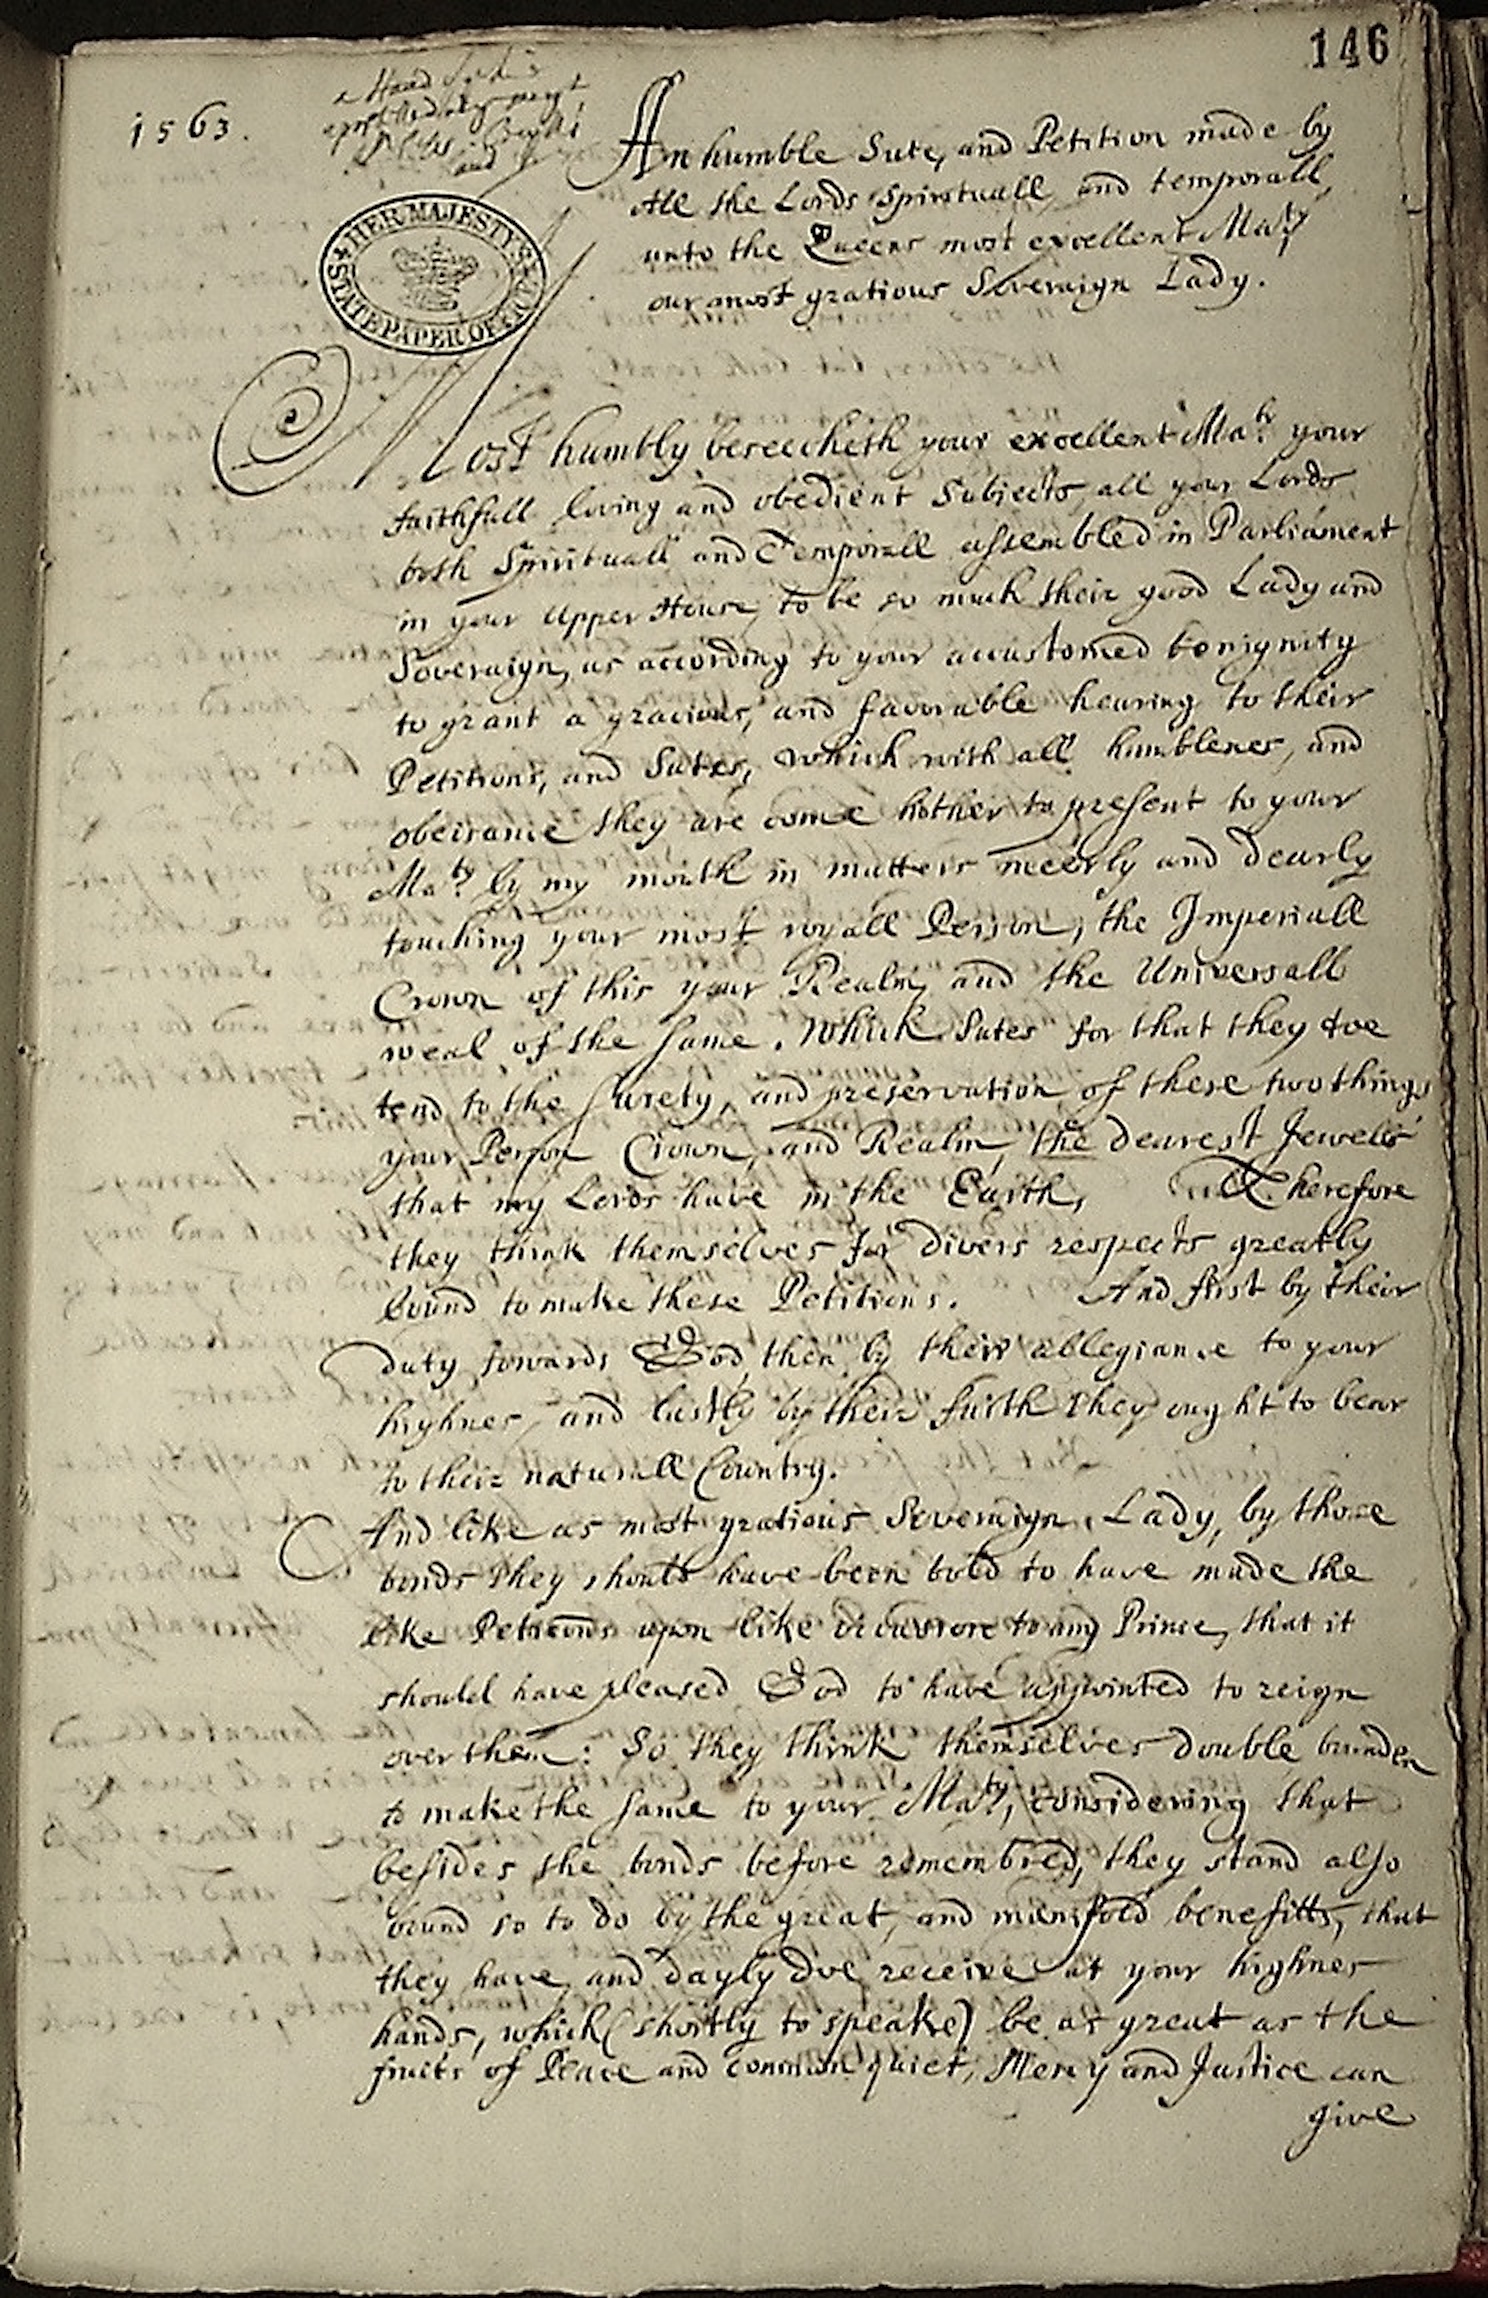 146
1563.
HER MAJESTY'S
STATE PAPER OFFICE
An humble Sute, and Petition made by
All the Lords Spirituall, and temporall,
unto the Queens most excellent Maty
our most gratious Soveraign Lady.
Most humbly beseecheth your excellent Maty your
faithfull loving and obedient Subjects, all your Lords
both Spirituall and Temporall assembled in Parliament
in your Upper House, to be so much their good Lady and
Soveraign, as according to your accustomed benignity
to grant a gracious, and favorable hearing to their
Petitions, and Sutes, which with all humblenes, and
obeisance they are come hither to present to your
Maty by my mouth in matters meerly and dearly
touching your most royall Person, the Imperiall
Crown of this your Realm, and the Universall
weal of the same. Which Sutes for that they doe
tend to the surety, and preservation of these two things
your Person Crown, and Realm, the dearest Jewells
that my Lords have in the Earth, Therefore
they think themselves for divers respects greatly
bound to make these Petitions. And first by their
duty towards God, then by their allegiance to your
highnes, and lastly by their faith they ought to bear
to their naturall Country.
And like as most gratious Soveraign Lady, by those
bonds they should have been bold to have made the
like Peticions upon like occasione to any Prince, that it
should have pleased God to have appointed to reign
over them: So they think themselves double bounden
to make the same to your Maty, considering that
besides the bonds before remembred, they stand also
bound so to do by the great, and manifold benefitts, that
they have, and dayly doe receive at your highnes
hands, which (shortly to speake) be as great as the
fruits of Peace and common quiet, Mercy and Justice can
give